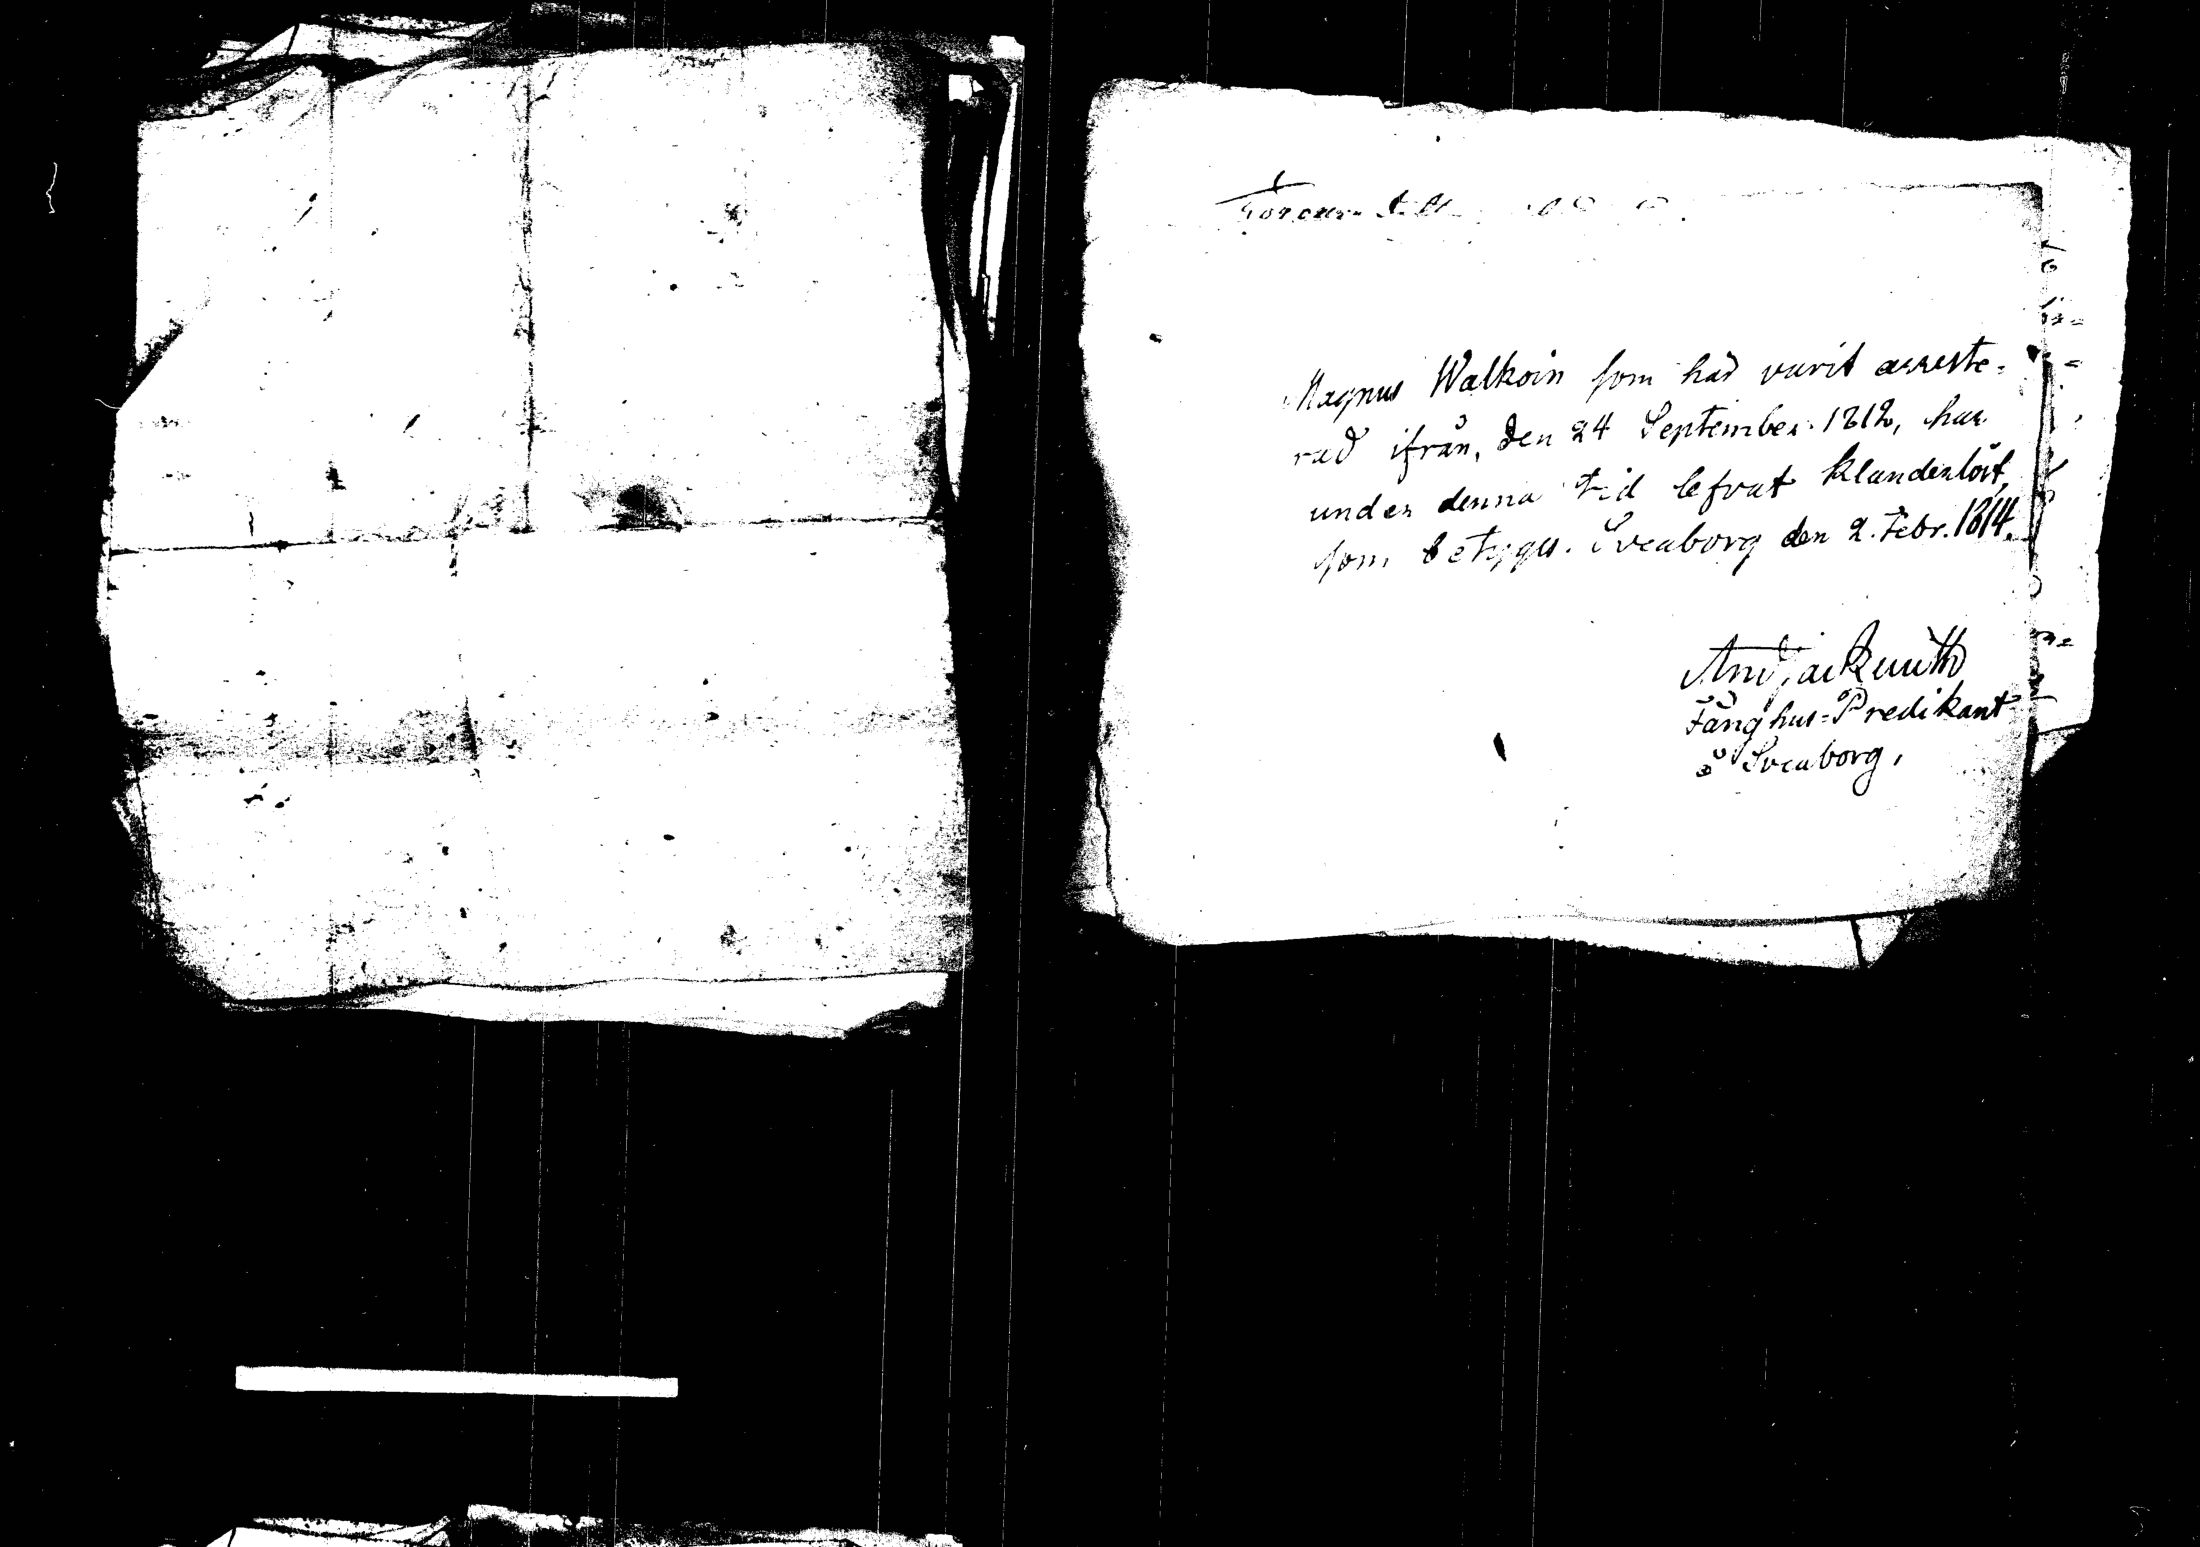 Magnus Walkoin som här varit arreste=
rad ifrån, den 24 September 1812, har
under denna tid lefvat klanderlöst,
som betygas. Sveaborg den 2. Febr. 1814.
Fånghus=Predikant
å Sveaborg.